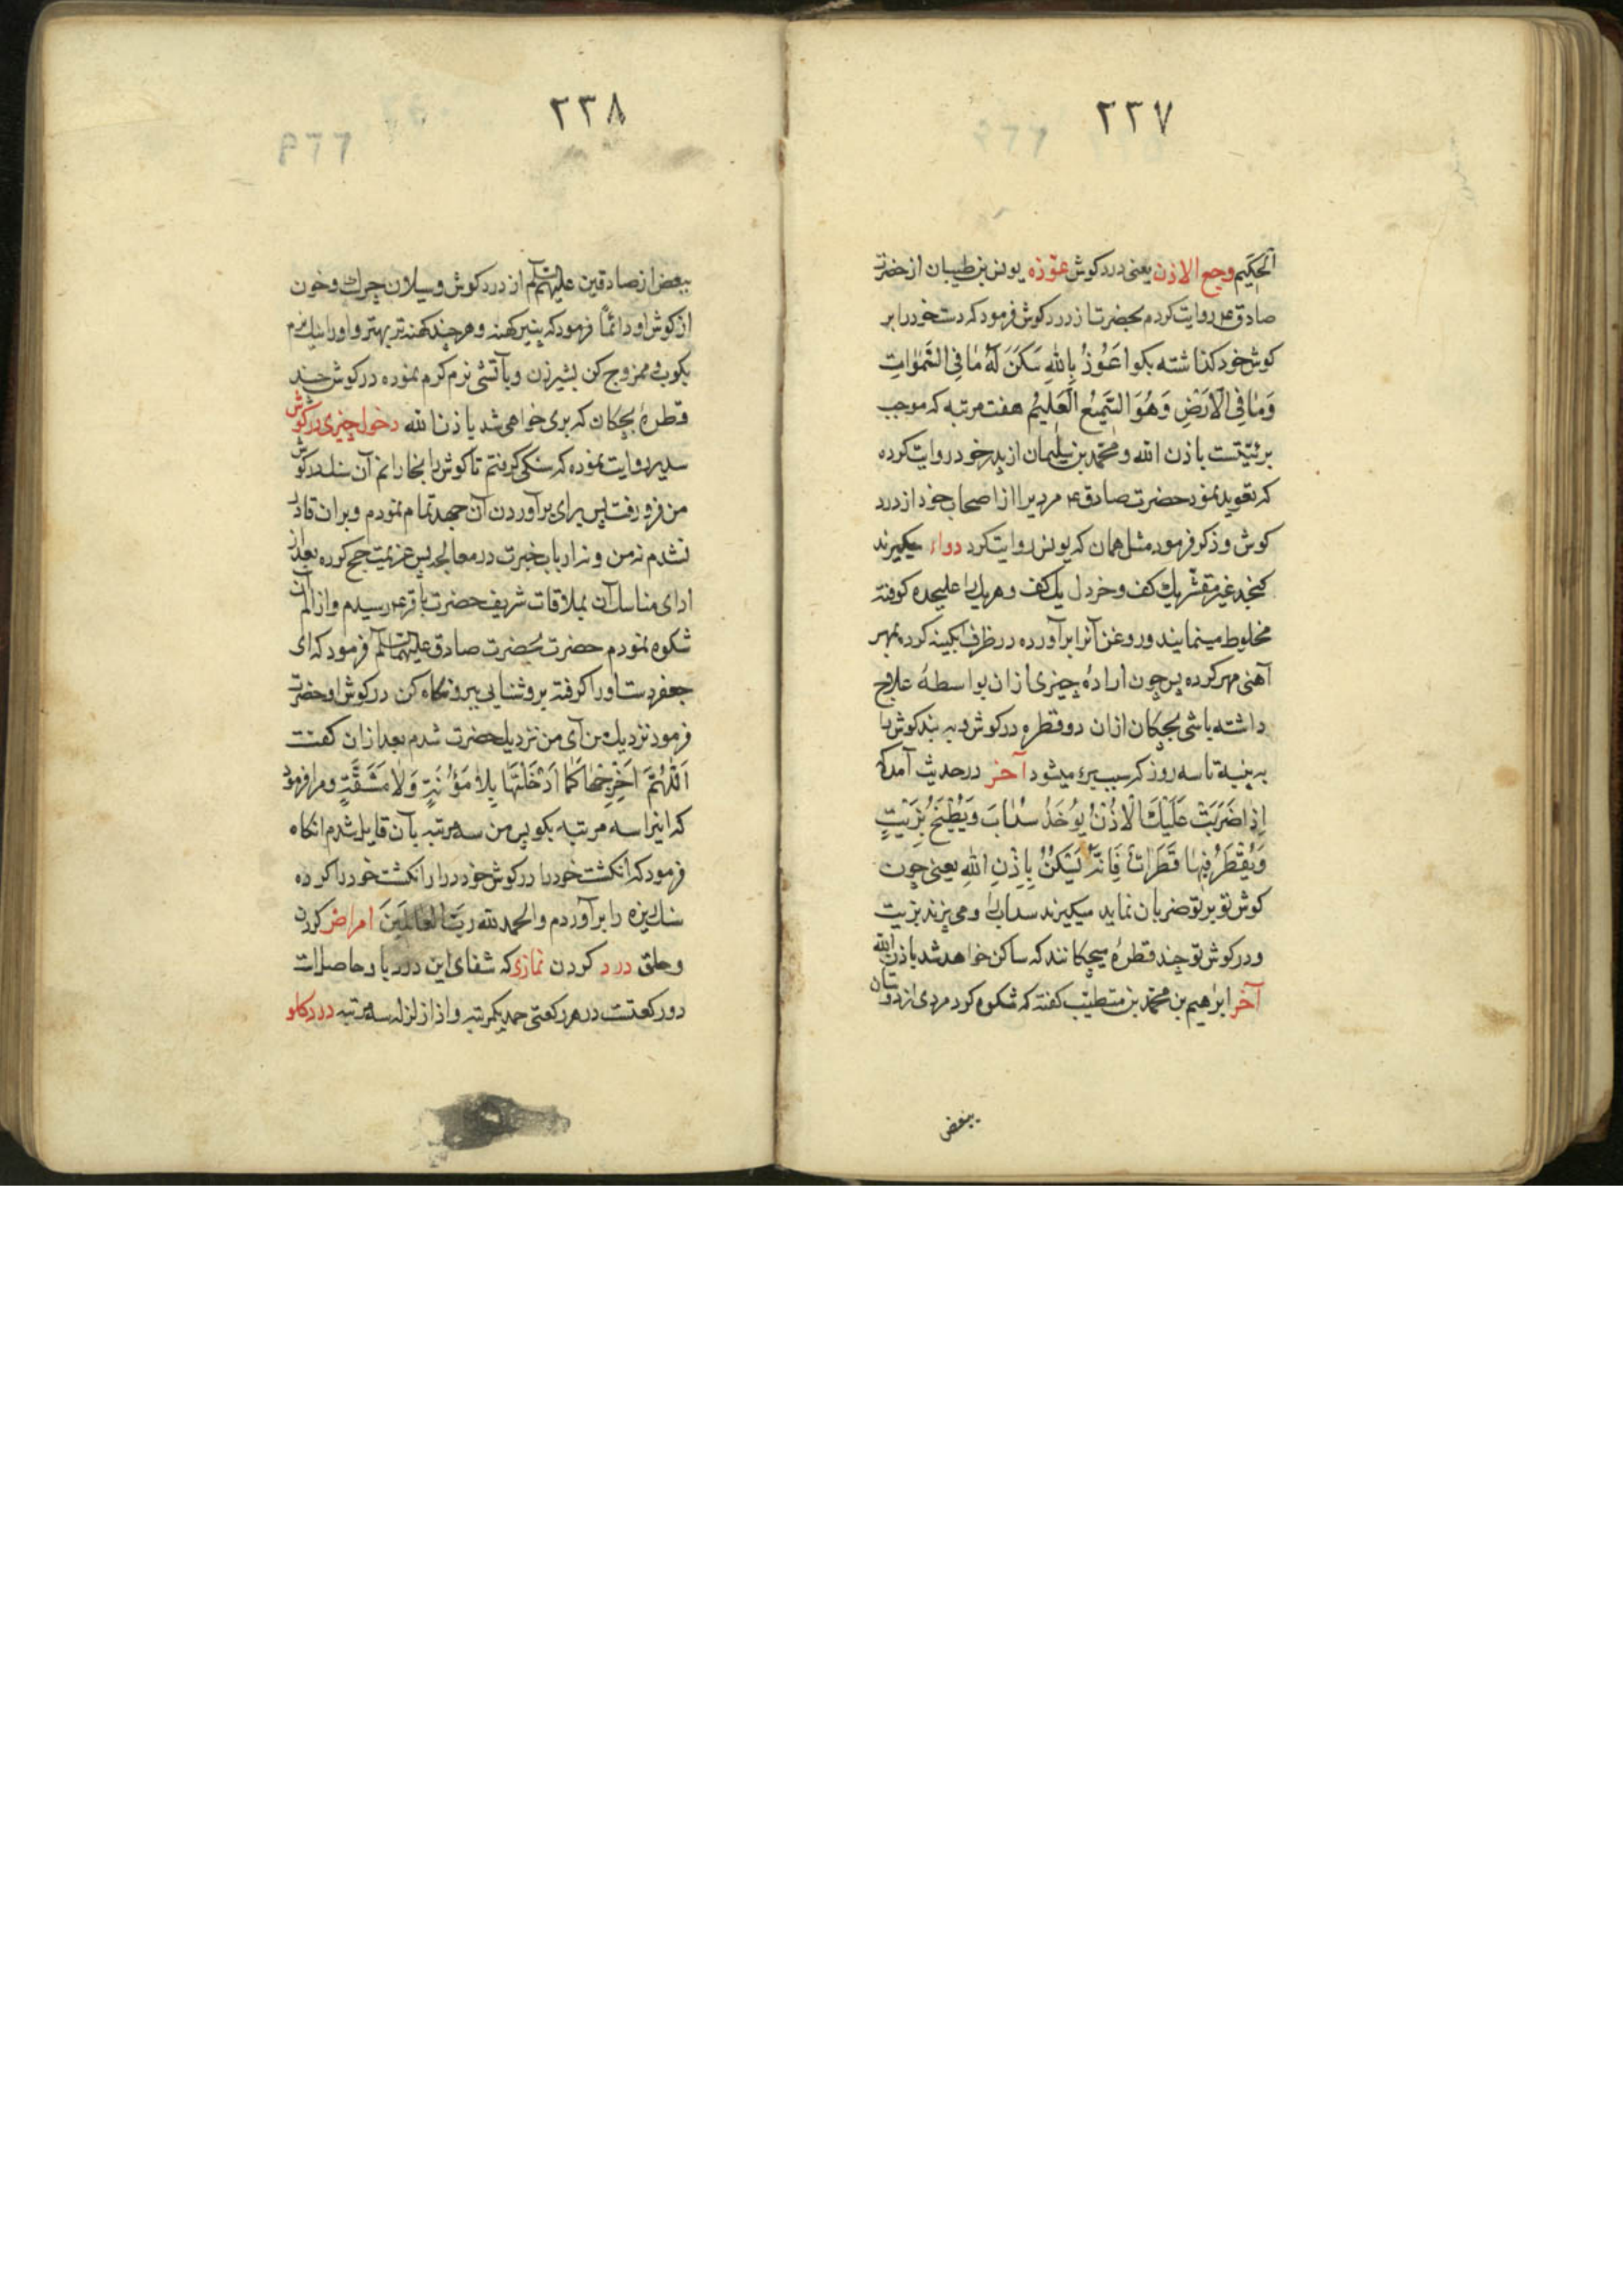 ٢٣٧
الحكيم وجع الاذن يعنى درد كوش عوّذه يونس بن ظبيان از حضرت
صادق ع روايت كردم بحضرت از درد كوش فرمود كه دست خود را بر
كوش خود كذاشته بكو اَعُوذُ بِاللهِ سَكَنَ لَهُ مٰا فِى السَّمٰوٰاتِ
وَمٰا فِى الْاَرْضِ وَهُوَ السَّمِيْعُ الْعَلِيْمُ هفت مرتبه كه موجب
برئيّتست باذن الله و محمّد بن سليمان از پدر خود روايت كرده
كه تعويذ نمود حضرت صادق ع مرديرا از اصحاب خود از درد
كوش و ذكر فرمود مثل همان كه يونس روايت كرد دواء ميكيرند
كنجد غير مقشّر يك كف و خردل يك كف و هر يك را عليحده كوفته
مخلوط مينمايند و روغن آنرا برآورده در ظرف آبكينه كرده بمهر
آهنى مهر كرده پس چون ارادهٔ چيزى ازان بواسطهٔ علاج
داشته باشى بچكان ازان دو قطره در كوش و به بند كوش را
به پنبه تا سه روز كه سبب برء ميشود آخر در حديث آمده كه
اِذٰا ضَرَبَتْ عَلَيْكَ الْاُذُنُ يُؤْخَذُ سدٰابَ وَيُطْبَخُ بِزَيْتٍ
وَيُقْطَرُ فِيهٰا قَطَرٰات فَاِنَّهُ يَسْكُنُ بِاِذْنِ اللهِ يعنى چون
كوش تو بر تو ضربان نمايد ميكيرند سداب را و مى پزند بزيت
و در كوش تو چند قطرهٔ ميچكانند كه ساكن خواهد شد باذن الله
آخر ابرٰهيم بن محمّد بن متطبّب كفته كه شكوه كرد مردى از دوستان
ببعض
٢٣٨
ببعض از صادقين عليهم السلام از درد كوش و سيلان چرك و خون
از كوش او دائمًا فرمود كه پنير كهنه و هر چند كهنه تر بهتر و او را نيك نرم
بكوب و ممزوج كن بشير زن و بآتشى نرم كرم نموده در كوش چند
قطرهٔ بچكان كه برى خواهى شد باذن الله دخول چيزى در كوش
سدير روايت نموده كه سنكى كرفتم تا كوش را بخارانم آن سنك در كوش
من فرو رفت پس براى برآوردن آن جهد تمام نمودم و بران قادر
نشدم نه من و نه ارباب خبرت در معالجه پس عزيمت حج كرده بعد از
اداى مناسك آن بملاقات شريف حضرت باقر ع رسيدم و از الم آن
شكوه نمودم حضرت بحضرت صادق عليهما السلام فرمود كه اى
جعفر دست او را كرفته بروشنايى ببر و نكاه كن در كوش او حضرت
فرمود نزديك من آى من نزديك حضرت شدم بعد ازان كفت
اَللّٰهُمَّ اَخْرِجْهٰا كَمٰا اَدْخَلْتَهٰا بِلاٰ مَؤُنَةٍ وَلاٰ مَشَقَّةٍ و مرا فرمود
كه اينرا سه مرتبه بكو پس من سه مرتبه بآن قايل شدم انكاه
فرمود كه انكشت خود را در كوش خود درار انكشت خود را كرده
سنك ريزه را برآوردم والحمد لله رَبِّ الْعٰالَمِيْنَ امراض كردن
و حلق درد كردن نمازى كه شفاى اين درد باو حاصل است
دو ركعتست در هر ركعتى حمد يكمرتبه و اذا زلزله سه مرتبه درد كلو